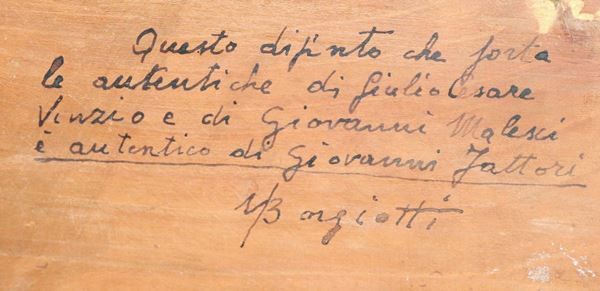 Questo dipinto che porta
le autentiche di Giulio Cesare
Vinzio e di Giovanni Malesci
è autentico di Giovanni Fattori
Borgiotti